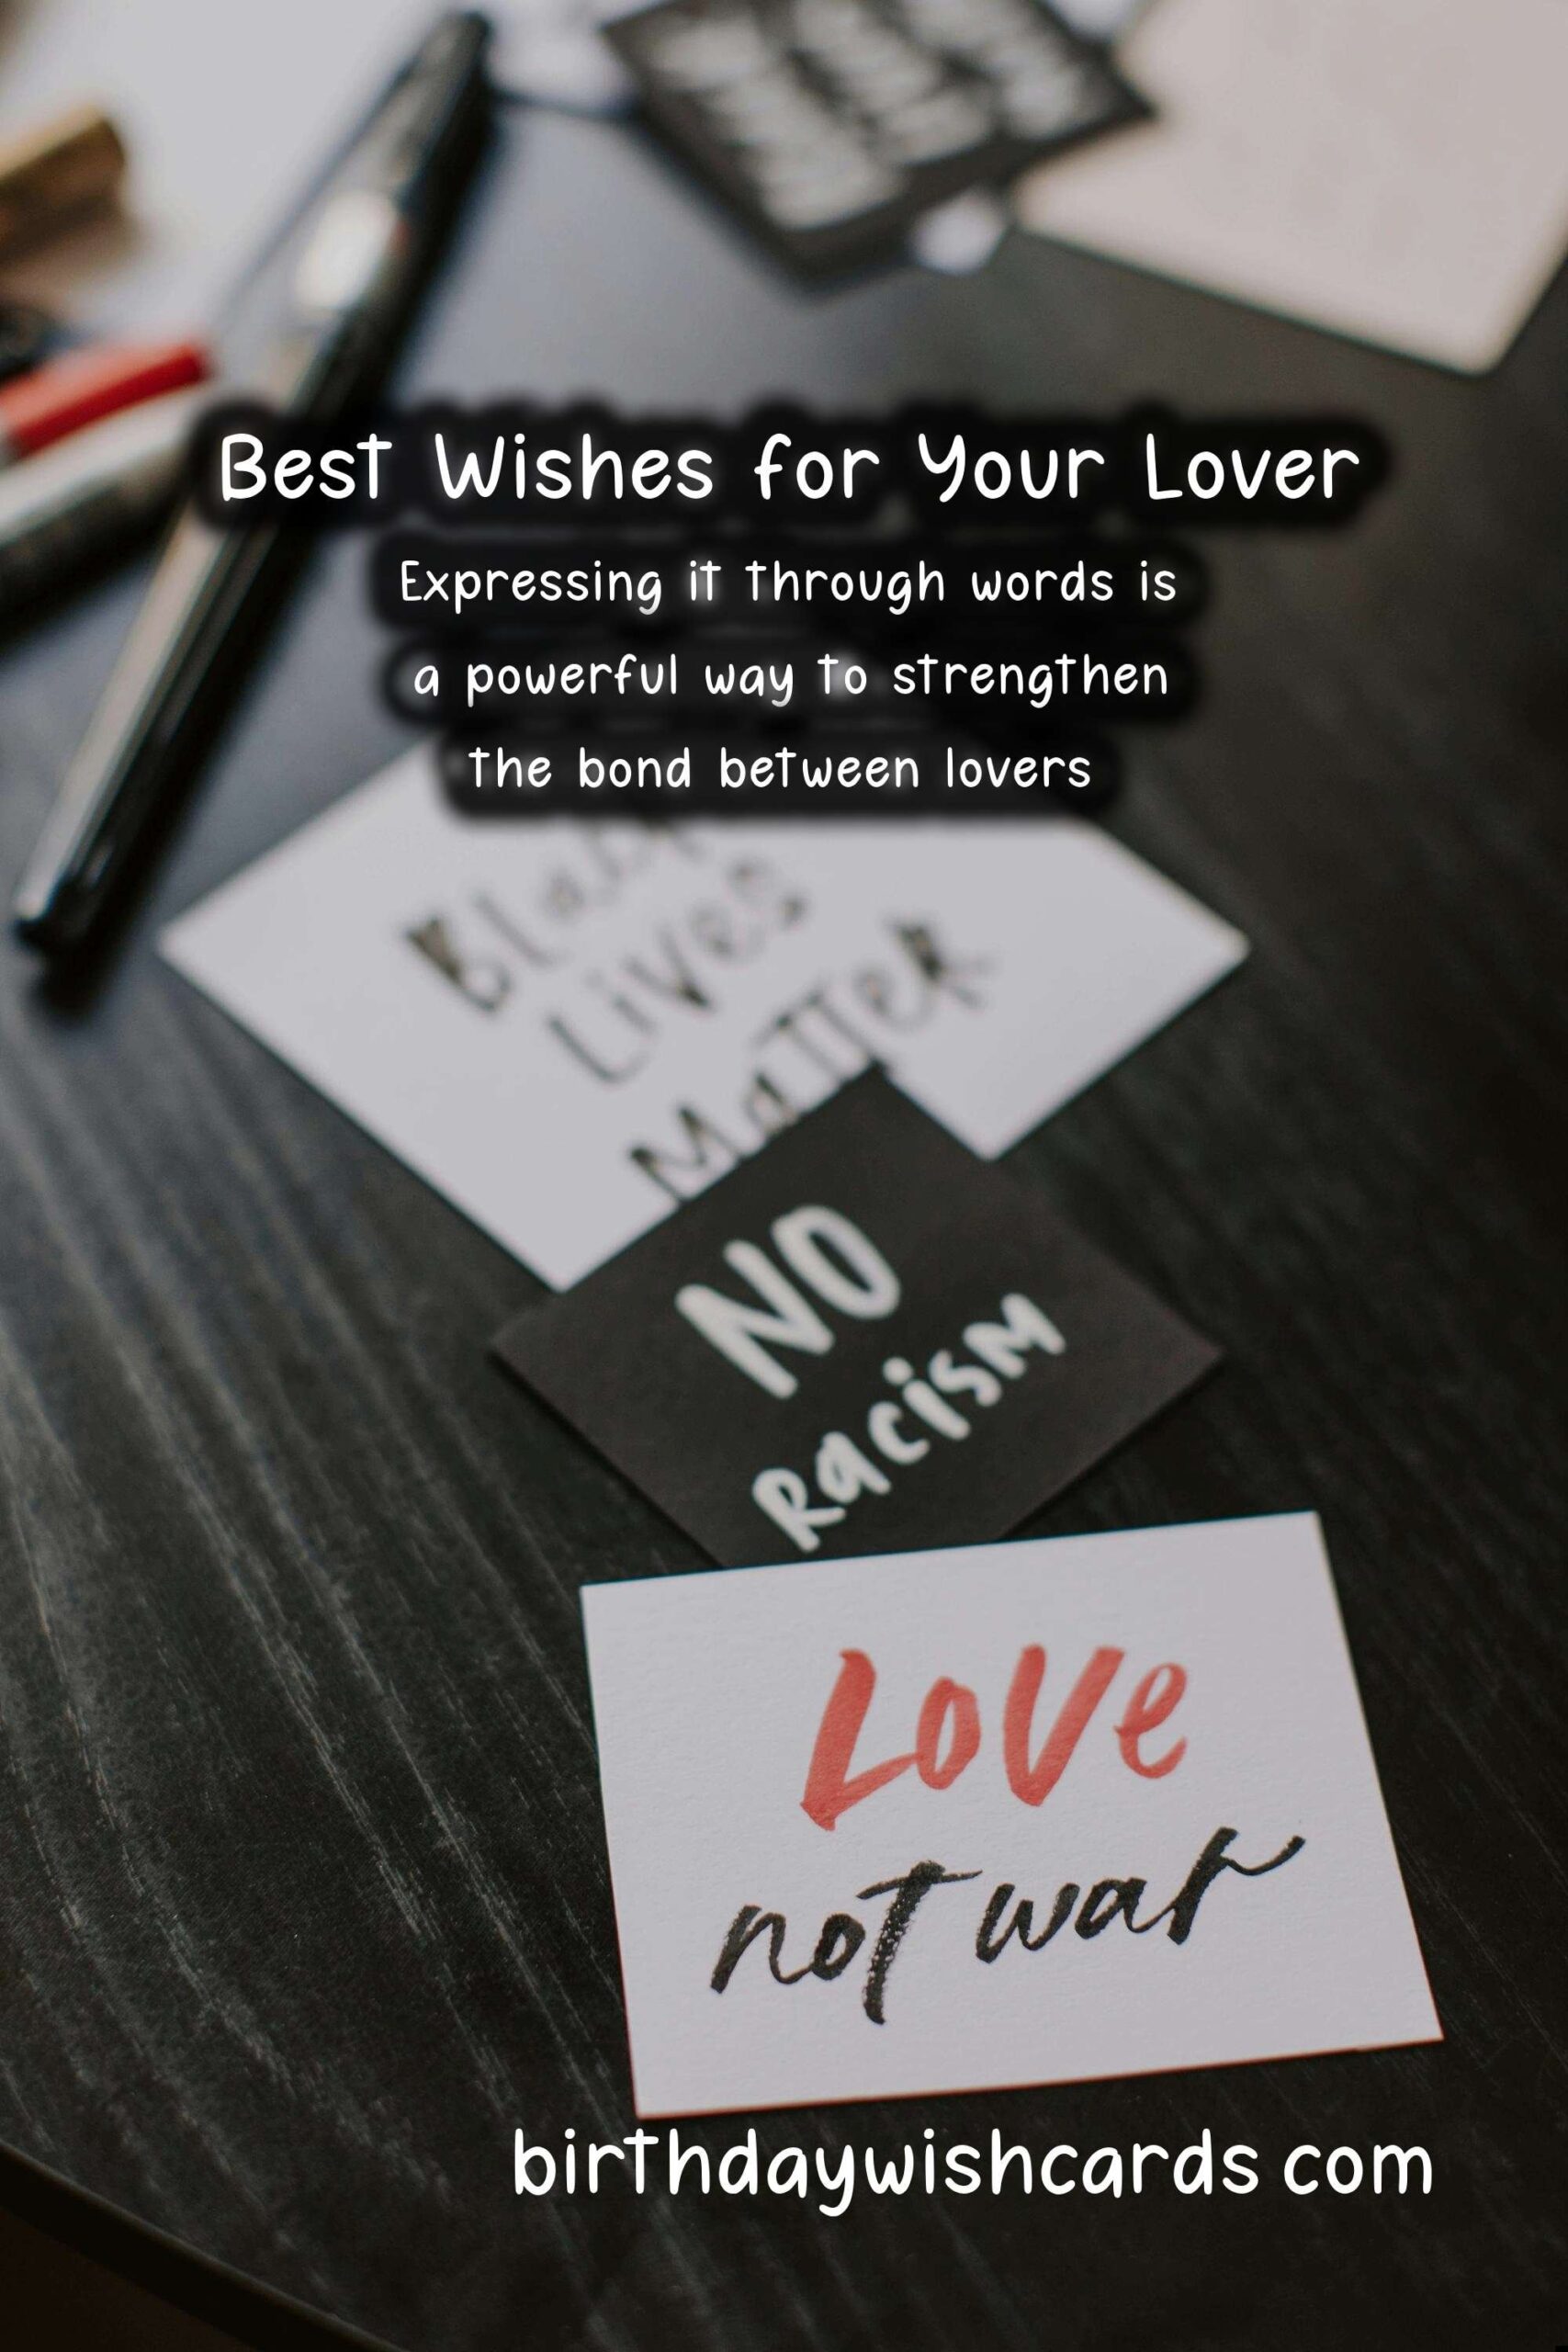 Best Wishes for Your Lover
Expressing it through words is
a powerful way to strengthen
the bond between lovers
Black
Lives
Matter
NO
Racism
Love
not war
birthdaywishcards com